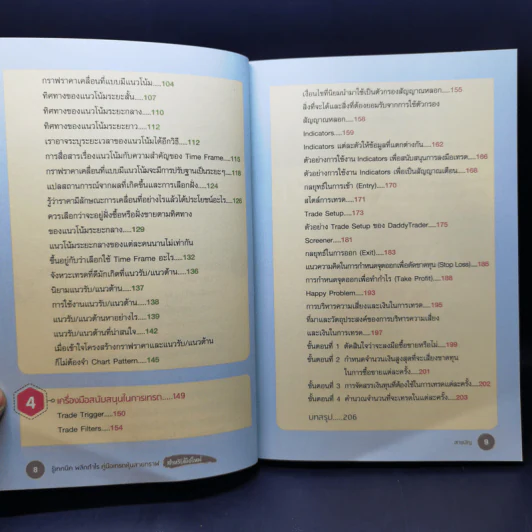 กราฟราคาเคลื่อนที่แบบมีแนวโน้ม.....104
ทิศทางของแนวโน้มระยะสั้น.....107
ทิศทางของแนวโน้มระยะกลาง.....110
ทิศทางของแนวโน้มระยะยาว.....112
เราอาจระบุระยะเวลาของแนวโน้มได้อีกวิธี.....112
การสื่อสารเรื่องแนวโน้มกับความสำคัญของ Time Frame.....115
กราฟราคาเคลื่อนที่แบบมีแนวโน้มจะมีการปรับฐานเป็นระยะๆ.....118
แปลสถานการณ์จากผลที่เกิดขึ้นและการเลือกฝั่ง.....124
รู้ว่าราคามีลักษณะการเคลื่อนที่อย่างไรแล้วได้ประโยชน์อะไร.....126
ควรเลือกว่าจะอยู่ฝั่งซื้อหรือฝั่งขายตามทิศทาง
ของแนวโน้มระยะกลาง.....129
แนวโน้มระยะกลางของแต่ละคนนานไม่เท่ากัน
ขึ้นอยู่กับว่าเลือกใช้ Time Frame อะไร.....132
จังหวะเทรดที่ดีมักเกิดที่แนวรับ/แนวต้าน.....136
นิยามแนวรับ/แนวต้าน.....137
การใช้งานแนวรับ/แนวต้าน.....138
แนวรับ/แนวต้านหาอย่างไร.....139
แนวรับ/แนวต้านที่น่าสนใจ.....142
เมื่อเข้าใจโครงสร้างกราฟราคาและแนวรับ/แนวต้าน
ก็ไม่ต้องจำ Chart Pattern.....145
4 เครื่องมือสนับสนุนในการเทรด.....149
Trade Trigger.....150
Trade Filters.....154
8 รู้เทคนิค พลิกกำไร คู่มือเทรดหุ้นสายกราฟ
เงื่อนไขที่นิยมนำมาใช้เป็นตัวกรองสัญญาณหลอก.....155
สิ่งที่จะได้และสิ่งที่ต้องยอมรับจากการใช้ตัวกรอง
สัญญาณหลอก.....158
Indicators.....159
Indicators แต่ละตัวให้ข้อมูลที่แตกต่างกัน.....162
ตัวอย่างการใช้งาน Indicators เพื่อสนับสนุนการลงมือเทรด.....166
ตัวอย่างการใช้งาน Indicators เพื่อเป็นสัญญาณเตือน.....168
กลยุทธ์ในการเข้า (Entry).....170
สไตล์การเทรด.....171
Trade Setup.....173
ตัวอย่าง Trade Setup ของ DaddyTrader.....175
Screener.....181
กลยุทธ์ในการออก (Exit).....183
แนวความคิดในการกำหนดจุดออกเพื่อตัดขาดทุน (Stop Loss).....185
การกำหนดจุดออกเพื่อทำกำไร (Take Profit).....188
Happy Problem.....193
การบริหารความเสี่ยงและเงินในการเทรด.....195
ที่มาและวัตถุประสงค์ของการบริหารความเสี่ยง
และเงินในการเทรด.....197
ขั้นตอนที่ 1 ตัดสินใจว่าจะลงมือซื้อขายหรือไม่.....199
ขั้นตอนที่ 2 กำหนดจำนวนเงินสูงสุดที่จะเสี่ยงขาดทุน
ในการซื้อขายแต่ละครั้ง.....201
ขั้นตอนที่ 3 การจัดสรรเงินทุนที่ต้องใช้ในการเทรดแต่ละครั้ง.....202
ขั้นตอนที่ 4 คำนวณจำนวนที่จะเทรดในแต่ละครั้ง.....203
บทสรุป.....206
สารบัญ 9